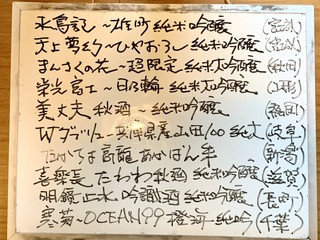 水鳥記~雄町 純米吟醸 (宮城)
天上夢幻~ひやおろし 純米吟醸 (宮城)
まんさくの花~超限定 純米大吟醸 (秋田)
栄光冨士~日乃輪 純米大吟醸 (山形)
美丈夫 秋酒~純米吟醸
Wダブリュー~兵庫県産山田100 純大 (岐阜)
たかちよ 高龍 あかばん 生 (新潟)
喜楽長 たわわ秋酒 純米吟醸 (滋賀)
明鏡止水 吟織酒 純米吟醸 (長野)
寒菊~OCEAN99橙海~純吟 (千葉)